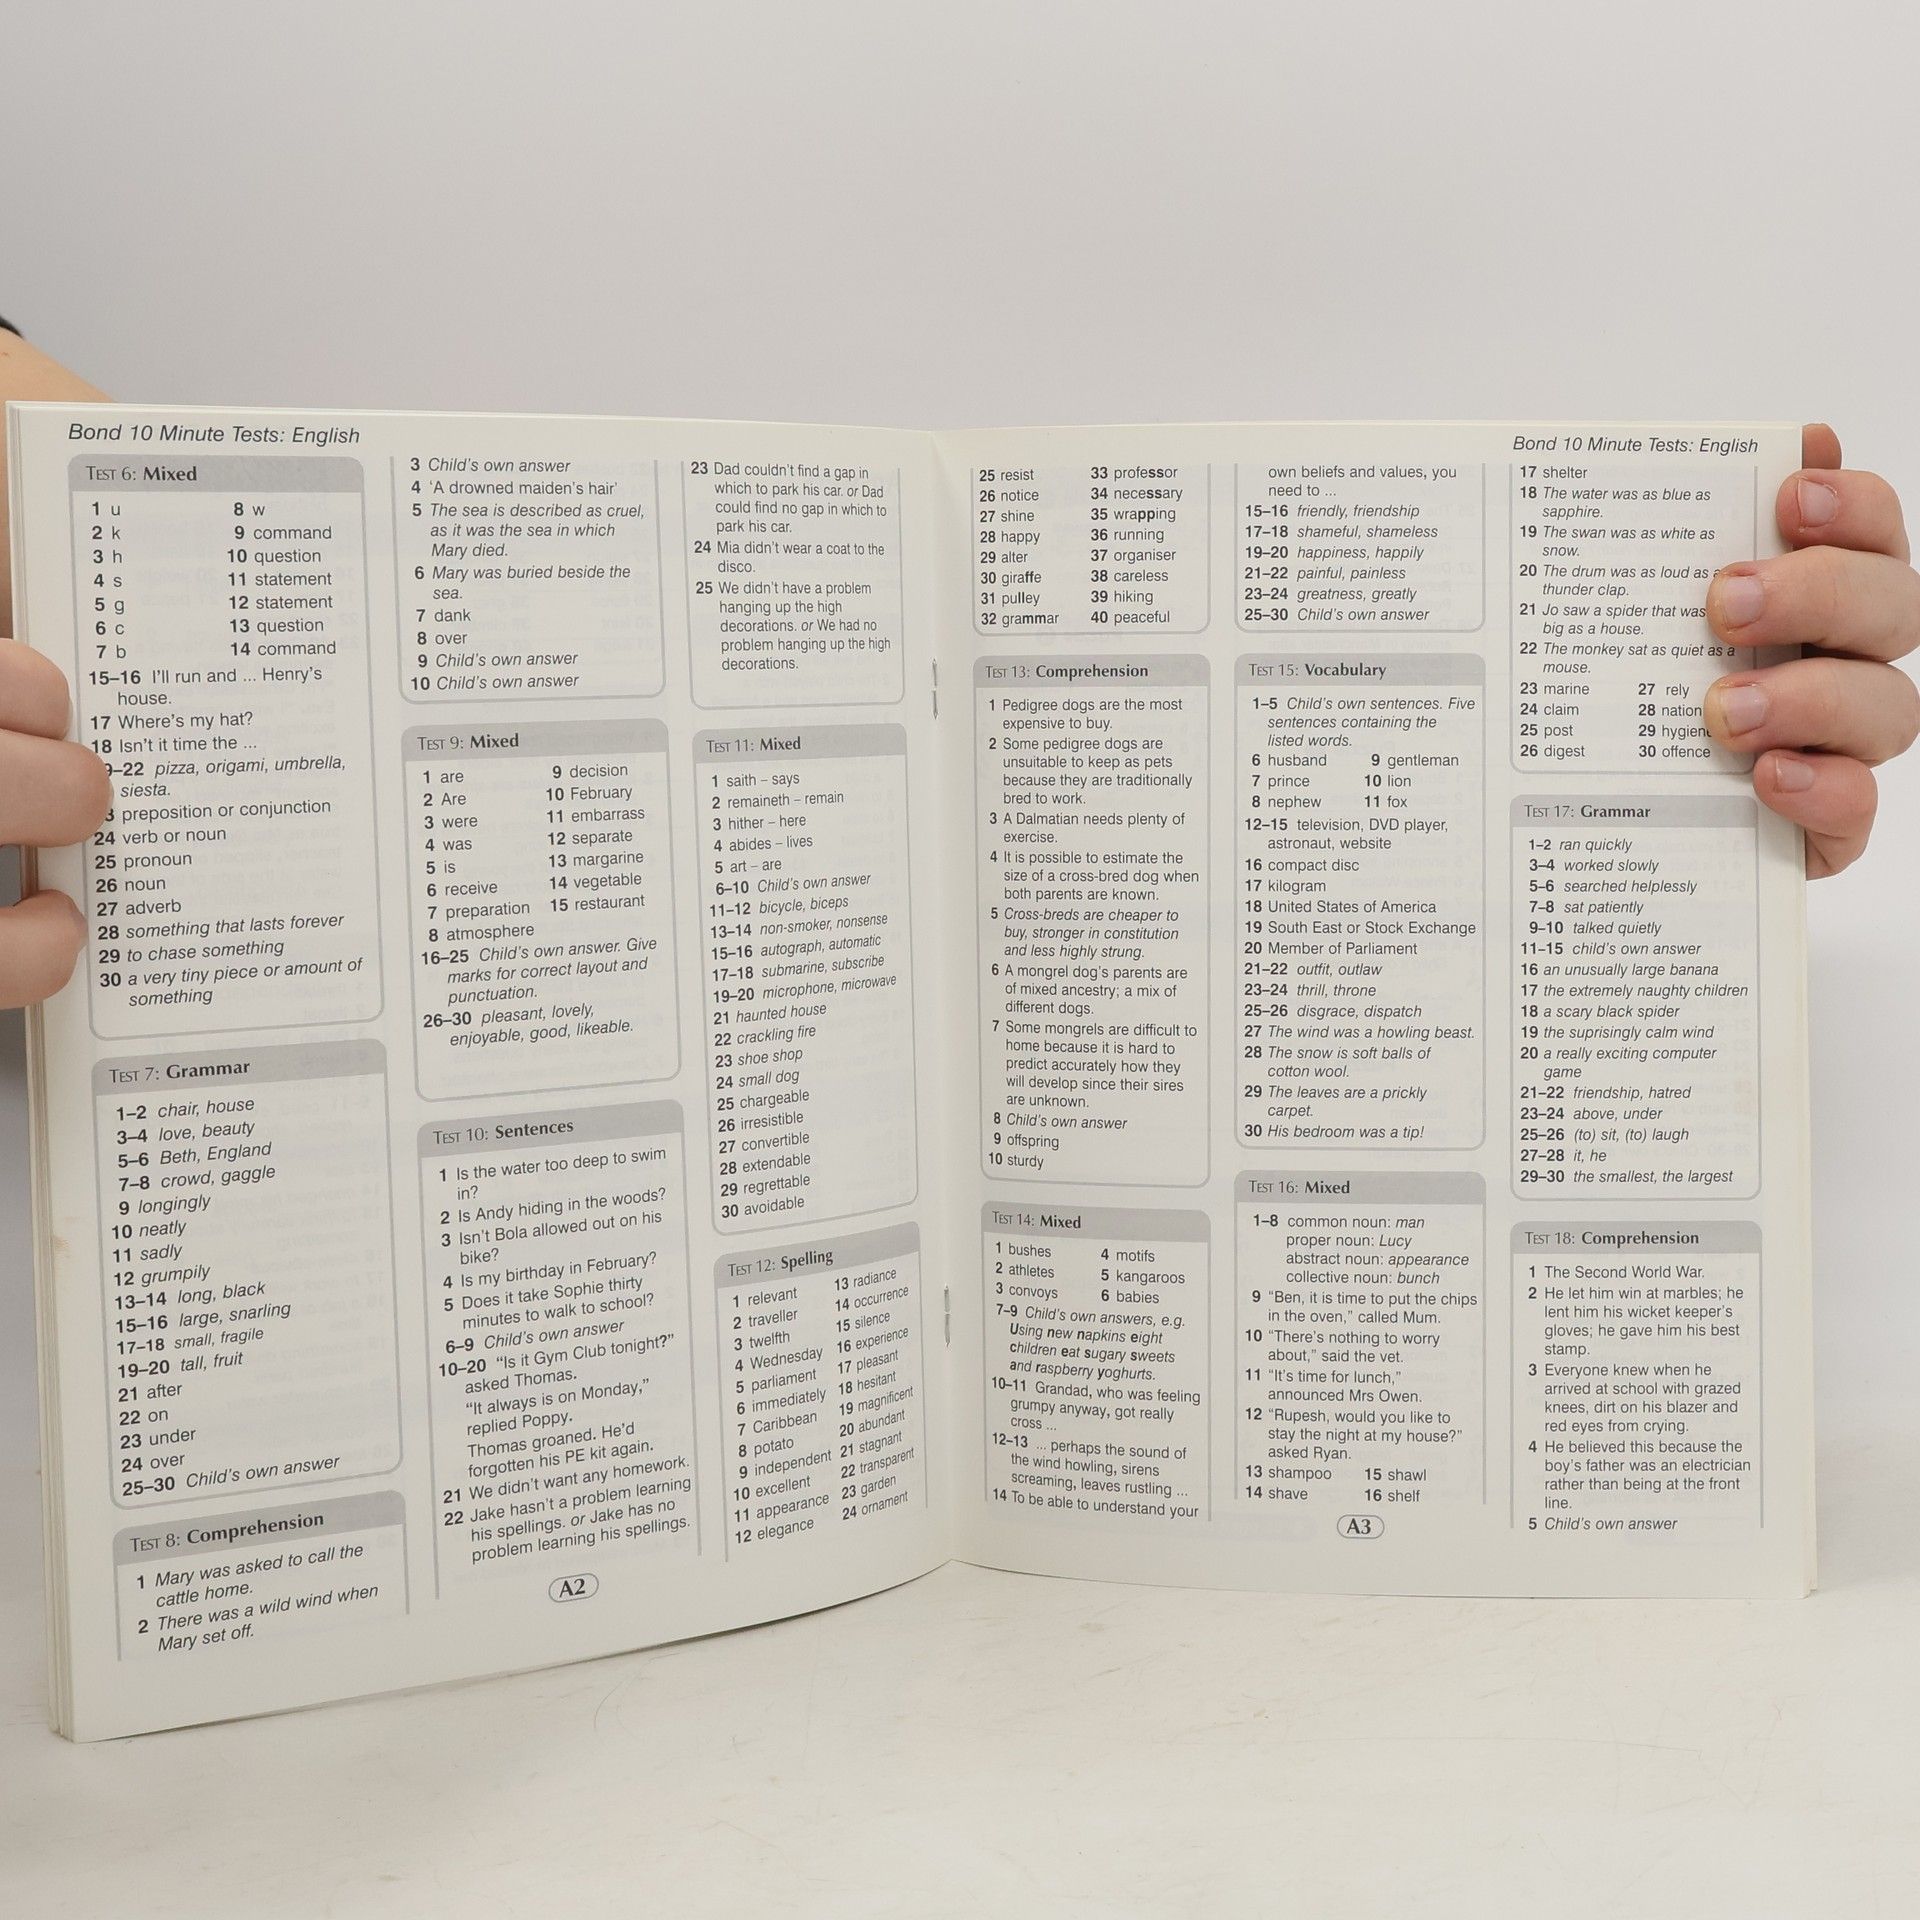 Bond 10 Minute Tests: English
TEST 6: Mixed
1 u
2 k
3 h
4 s
5 g
6 c
7 b
8 w
9 command
10 question
11 statement
12 statement
13 question
14 command
15–16 I'll run and ... Henry's
house.
17 Where's my hat?
18 Isn't it time the ...
–22 pizza, origami, umbrella,
siesta.
3 preposition or conjunction
24 verb or noun
25 pronoun
26 noun
27 adverb
28 something that lasts forever
29 to chase something
30 a very tiny piece or amount of
something
TEST 7: Grammar
1–2 chair, house
3–4 love, beauty
5–6 Beth, England
7–8 crowd, gaggle
9 longingly
10 neatly
11 sadly
12 grumpily
13–14 long, black
15–16 large, snarling
17–18 small, fragile
19–20 tall, fruit
21 after
22 on
23 under
24 over
25–30 Child's own answer
TEST 8: Comprehension
1 Mary was asked to call the
cattle home.
2 There was a wild wind when
Mary set off.
3 Child's own answer
4 'A drowned maiden's hair'
5 The sea is described as cruel,
as it was the sea in which
Mary died.
6 Mary was buried beside the
sea.
7 dank
8 over
9 Child's own answer
10 Child's own answer
TEST 9: Mixed
1 are
2 Are
3 were
4 was
5 is
6 receive
7 preparation
8 atmosphere
9 decision
10 February
11 embarrass
12 separate
13 margarine
14 vegetable
15 restaurant
16–25 Child's own answer. Give
marks for correct layout and
punctuation.
26–30 pleasant, lovely,
enjoyable, good, likeable.
TEST 10: Sentences
1 Is the water too deep to swim
in?
2 Is Andy hiding in the woods?
3 Isn't Bola allowed out on his
bike?
4 Is my birthday in February?
5 Does it take Sophie thirty
minutes to walk to school?
6–9 Child's own answer
10–20 "Is it Gym Club tonight?"
asked Thomas.
"It always is on Monday,"
replied Poppy.
Thomas groaned. He'd
forgotten his PE kit again.
21 We didn't want any homework.
22 Jake hasn't a problem learning
his spellings. or Jake has no
problem learning his spellings.
A2
23 Dad couldn't find a gap in
which to park his car. or Dad
could find no gap in which to
park his car.
24 Mia didn't wear a coat to the
disco.
25 We didn't have a problem
hanging up the high
decorations. or We had no
problem hanging up the high
decorations.
TEST 11: Mixed
1 saith – says
2 remaineth – remain
3 hither – here
4 abides – lives
5 art – are
6–10 Child's own answer
11–12 bicycle, biceps
13–14 non-smoker, nonsense
15–16 autograph, automatic
17–18 submarine, subscribe
19–20 microphone, microwave
21 haunted house
22 crackling fire
23 shoe shop
24 small dog
25 chargeable
26 irresistible
27 convertible
28 extendable
29 regrettable
30 avoidable
TEST 12: Spelling
1 relevant
2 traveller
3 twelfth
4 Wednesday
5 parliament
6 immediately
7 Caribbean
8 potato
9 independent
10 excellent
11 appearance
12 elegance
13 radiance
14 occurrence
15 silence
16 experience
17 pleasant
18 hesitant
19 magnificent
20 abundant
21 stagnant
22 transparent
23 garden
24 ornament
Bond 10 Minute Tests: English
25 resist
26 notice
27 shine
28 happy
29 alter
30 giraffe
31 pulley
32 grammar
33 professor
34 necessary
35 wrapping
36 running
37 organiser
38 careless
39 hiking
40 peaceful
TEST 13: Comprehension
1 Pedigree dogs are the most
expensive to buy.
2 Some pedigree dogs are
unsuitable to keep as pets
because they are traditionally
bred to work.
3 A Dalmatian needs plenty of
exercise.
4 It is possible to estimate the
size of a cross-bred dog when
both parents are known.
5 Cross-breds are cheaper to
buy, stronger in constitution
and less highly strung.
6 A mongrel dog's parents are
of mixed ancestry; a mix of
different dogs.
7 Some mongrels are difficult to
home because it is hard to
predict accurately how they
will develop since their sires
are unknown.
8 Child's own answer
9 offspring
10 sturdy
TEST 14: Mixed
1 bushes
2 athletes
3 convoys
4 motifs
5 kangaroos
6 babies
7–9 Child's own answers, e.g.
Using new napkins eight
children eat sugary sweets
and raspberry yoghurts.
10–11 Grandad, who was feeling
grumpy anyway, got really
cross ...
12–13 ... perhaps the sound of
the wind howling, sirens
screaming, leaves rustling ...
14 To be able to understand your
own beliefs and values, you
need to ...
15–16 friendly, friendship
17–18 shameful, shameless
19–20 happiness, happily
21–22 painful, painless
23–24 greatness, greatly
25–30 Child's own answer
TEST 15: Vocabulary
1–5 Child's own sentences. Five
sentences containing the
listed words.
6 husband
7 prince
8 nephew
9 gentleman
10 lion
11 fox
12–15 television, DVD player,
astronaut, website
16 compact disc
17 kilogram
18 United States of America
19 South East or Stock Exchange
20 Member of Parliament
21–22 outfit, outlaw
23–24 thrill, throne
25–26 disgrace, dispatch
27 The wind was a howling beast.
28 The snow is soft balls of
cotton wool.
29 The leaves are a prickly
carpet.
30 His bedroom was a tip!
TEST 16: Mixed
1–8 common noun: man
proper noun: Lucy
abstract noun: appearance
collective noun: bunch
9 "Ben, it is time to put the chips
in the oven," called Mum.
10 "There's nothing to worry
about," said the vet.
11 "It's time for lunch,"
announced Mrs Owen.
12 "Rupesh, would you like to
stay the night at my house?"
asked Ryan.
13 shampoo
14 shave
15 shawl
16 shelf
A3
17 shelter
18 The water was as blue as
sapphire.
19 The swan was as white as
snow.
20 The drum was as loud as a
thunder clap.
21 Jo saw a spider that was
big as a house.
22 The monkey sat as quiet as a
mouse.
23 marine
24 claim
25 post
26 digest
27 rely
28 nation
29 hygien
30 offence
TEST 17: Grammar
1–2 ran quickly
3–4 worked slowly
5–6 searched helplessly
7–8 sat patiently
9–10 talked quietly
11–15 child's own answer
16 an unusually large banana
17 the extremely naughty children
18 a scary black spider
19 the suprisingly calm wind
20 a really exciting computer
game
21–22 friendship, hatred
23–24 above, under
25–26 (to) sit, (to) laugh
27–28 it, he
29–30 the smallest, the largest
TEST 18: Comprehension
1 The Second World War.
2 He let him win at marbles; he
lent him his wicket keeper's
gloves; he gave him his best
stamp.
3 Everyone knew when he
arrived at school with grazed
knees, dirt on his blazer and
red eyes from crying.
4 He believed this because the
boy's father was an electrician
rather than being at the front
line.
5 Child's own answer